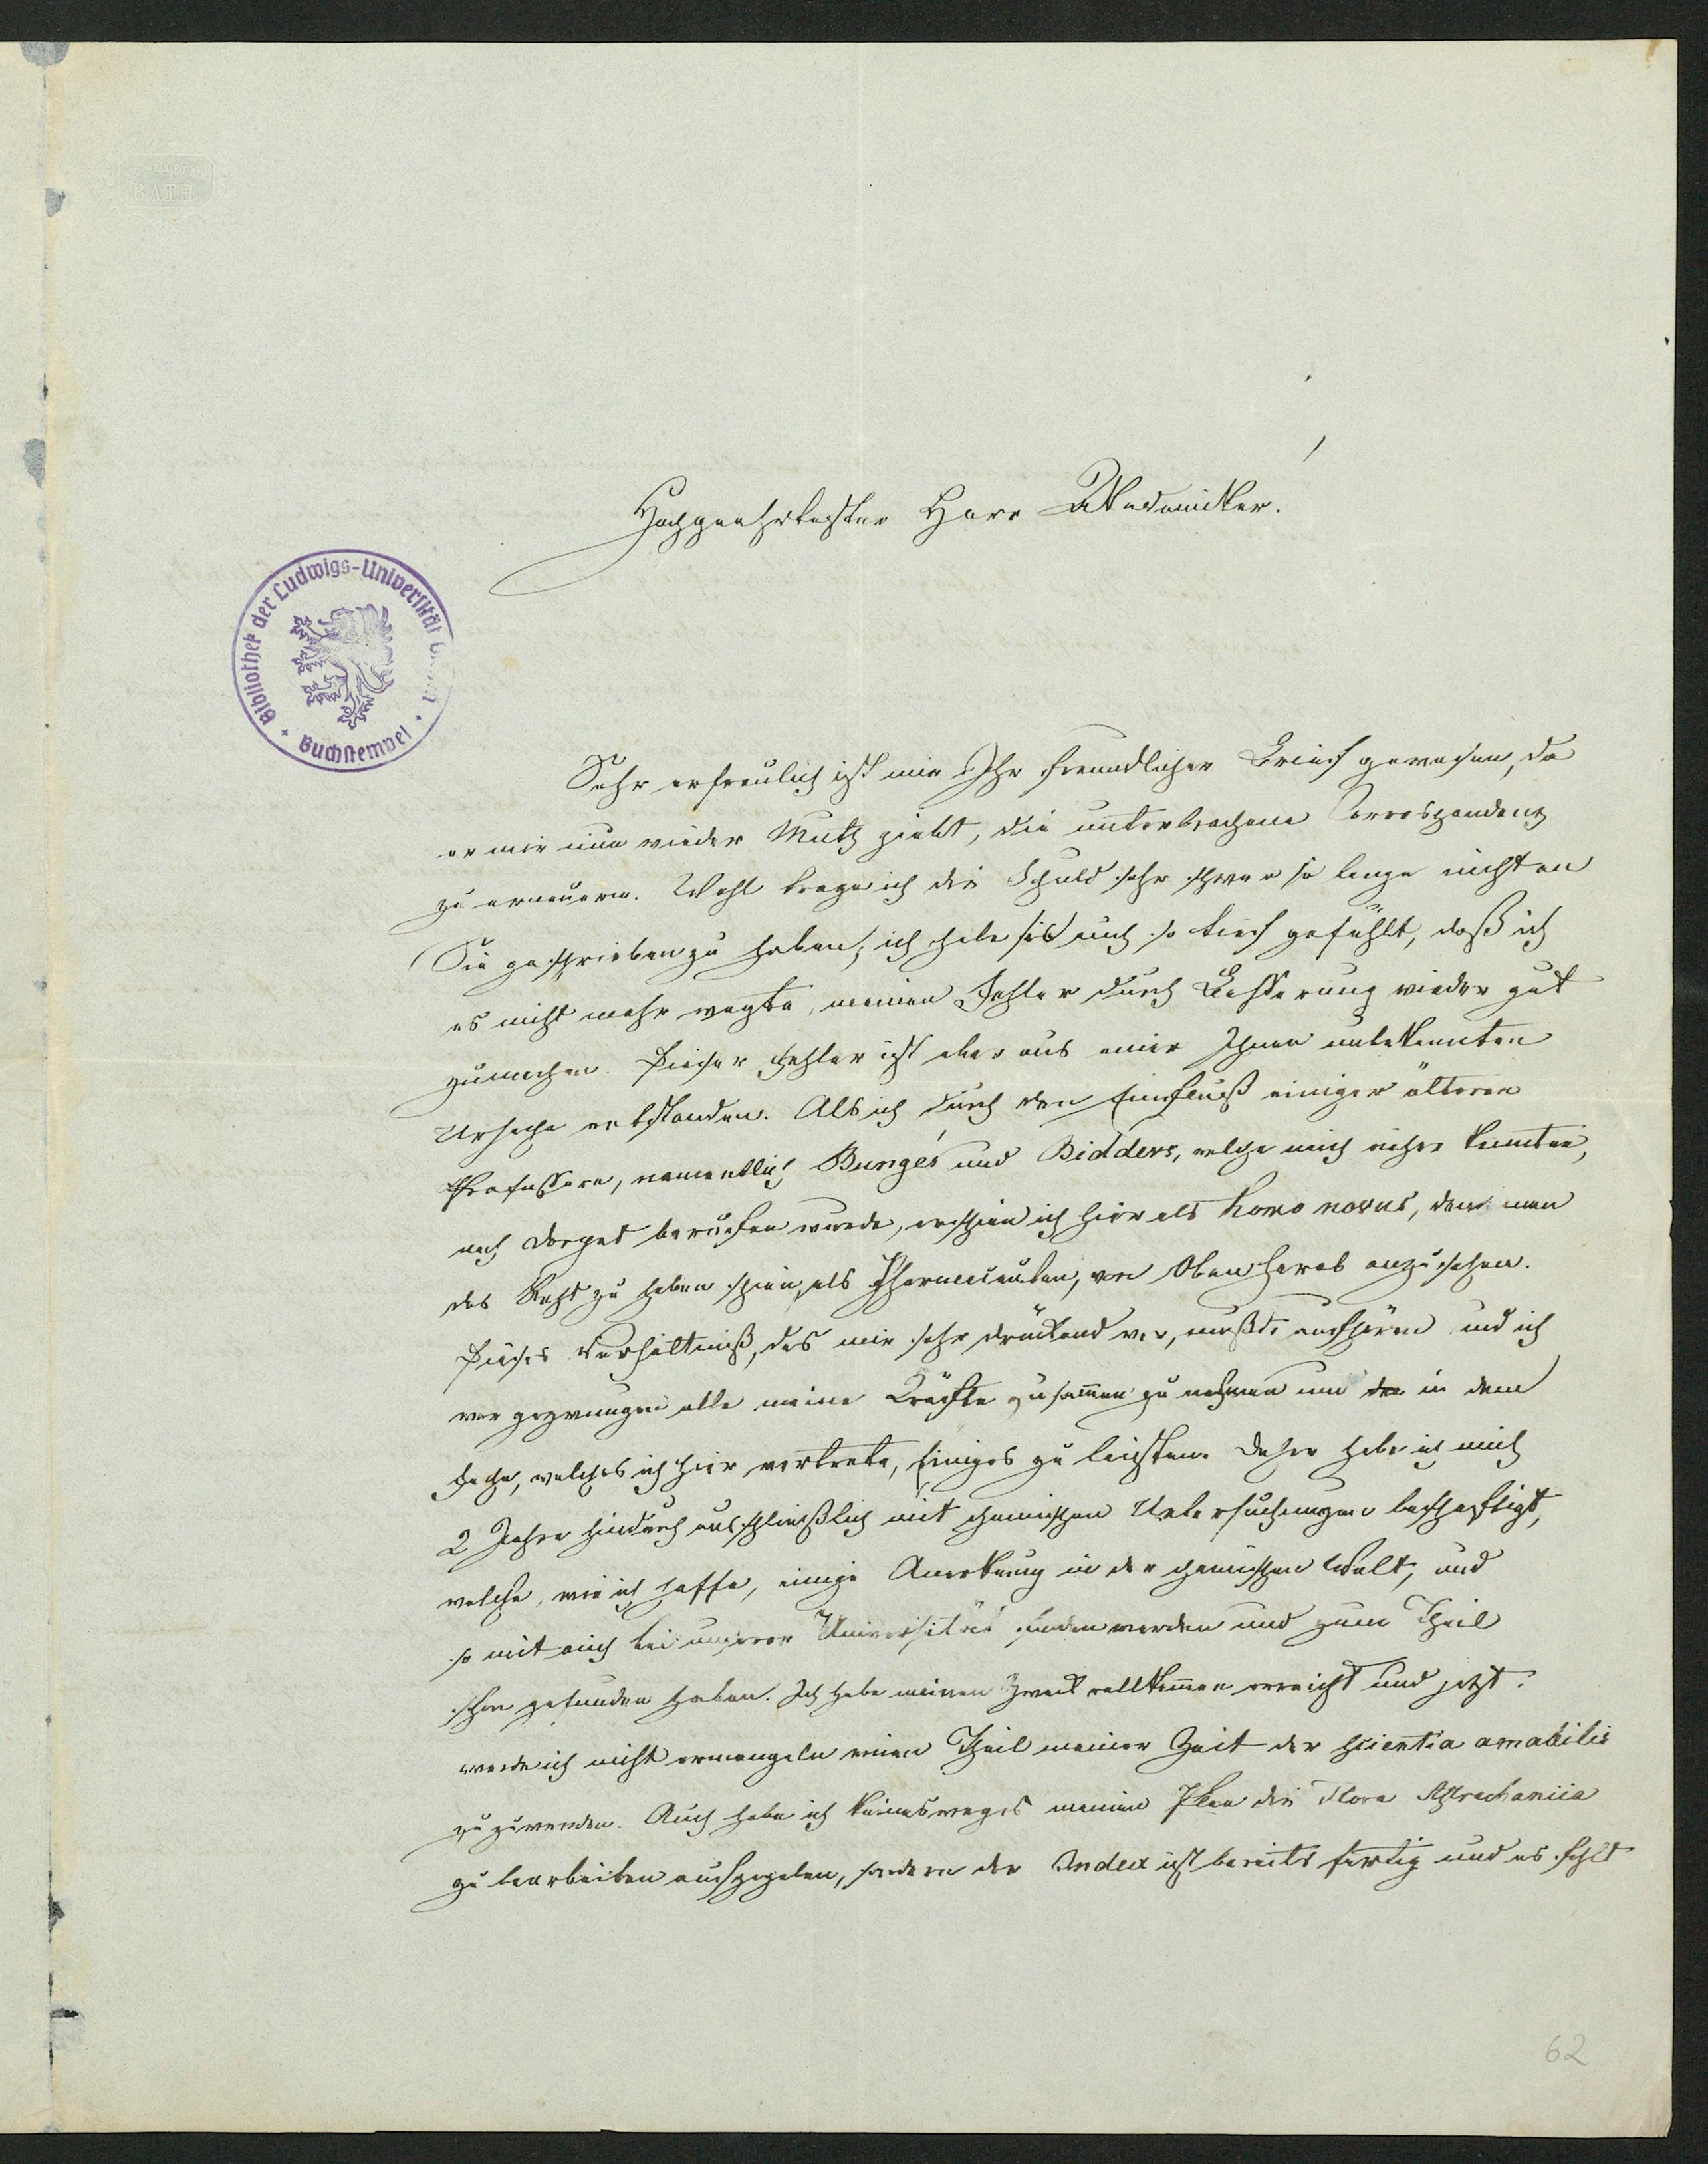 BATH
Hochgeehrtester Herr Akademiker!
Bibliothek der Ludwigs-Universität
Buchstempel
Sehr erfreulich ist mir Ihr freundlicher Brief gewesen, da
er mir nun wieder Muth giebt, die unterbrochene Correspondenz
zu erneuern. Wohl trage ich die Schuld sehr schwer so lange nicht an
Sie geschrieben zu haben; ich habe sie auch so tief gefühlt, daß ich
es nicht mehr wagte, meinen Fehler durch Besserung wieder gut
zumachen. Dieser Fehler ist aber aus einer Ihnen unbekannten
Ursache entstanden. Als ich durch den Einfluß einiger älteren
Professore, namentlich Bunge's und Bidders, welche mich näher kannten,
nach Dorpat berufen wurde, erschien ich hier als homo novus, den man
das Recht zu haben schien, als Pharmaceuten, von Oben herab anzusehen.
Dieses Verhältniß, das mir sehr drückend war, mußte aufhören und ich
war gezwungen alle meine Kräfte zusammen zu nehmen um in dem
Fache, welches ich hier vertrete, Einiges zu leisten. Daher habe ich mich
2 Jahre hindurch ausschließlich mit chemischen Untersuchungen beschäftigt,
welche, wie ich hoffe, einige Anerkennung in der chemischen Welt, und
so mit auch bei unserer Universität finden werden und zum Theil
schon gefunden haben. Ich habe meinen Zweck vollkommen erreicht und jetzt
werde ich nicht ermangeln einen Theil meiner Zeit der scientia amabilis
zuzuwenden. Auch habe ich keinesweges meinen Plan die Flora Astrachanica
zu bearbeiten aufgegeben, sondern der Index ist bereits fertig und es fehlt
62